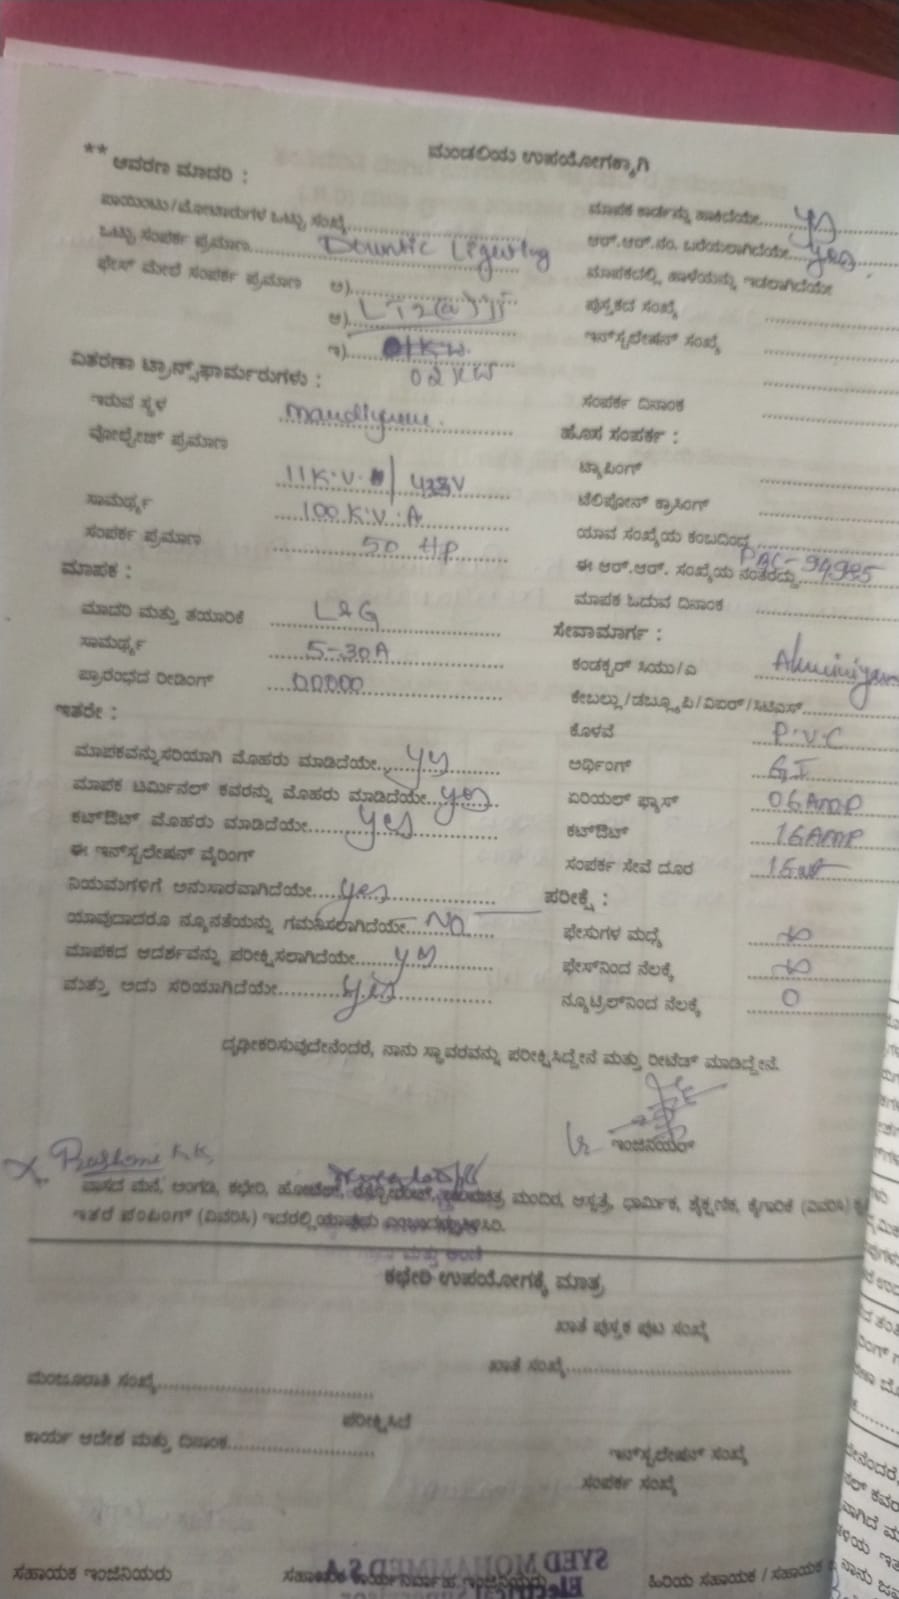 ಮಂಡಲಿಯ ಉಪಯೋಗಕ್ಕಾಗಿ
** ಆವರಣ ಮಾದರಿ :
ಪಾಯಿಂಟು/ಮೋಟಾರುಗಳ ಒಟ್ಟು ಸಂಖ್ಯೆ
ಒಟ್ಟು ಸಂಪರ್ಕ ಪ್ರಮಾಣ
ಫೇಸ್ ಮೇಲೆ ಸಂಪರ್ಕ ಪ್ರಮಾಣ ಅ)
ಆ) LT2(a)
ಇ) 01KW.
02KW
ವಿತರಣಾ ಟ್ರಾನ್ಸ್‌ಫಾರ್ಮರುಗಳು :
ಇರುವ ಸ್ಥಳ
ವೋಲ್ಟೇಜ್ ಪ್ರಮಾಣ
11K.V. / 433V
ಸಾಮರ್ಥ್ಯ 100K.V.A
ಸಂಪರ್ಕ ಪ್ರಮಾಣ 50 HP
ಮಾಪಕ :
ಮಾದರಿ ಮತ್ತು ತಯಾರಿಕೆ L&G
ಸಾಮರ್ಥ್ಯ 5-30A
ಪ್ರಾರಂಭದ ರೀಡಿಂಗ್ 00000
ಇತರೇ :
ಮಾಪಕವನ್ನು ಸರಿಯಾಗಿ ಮೊಹರು ಮಾಡಿದೆಯೇ yes
ಮಾಪಕ ಟರ್ಮಿನಲ್ ಕವರನ್ನು ಮೊಹರು ಮಾಡಿದೆಯೇ yes
ಕಟ್‌ಔಟ್ ಮೊಹರು ಮಾಡಿದೆಯೇ yes
ಈ ಇನ್‌ಸ್ಟಲೇಷನ್ ವೈರಿಂಗ್
ನಿಯಮಗಳಿಗೆ ಅನುಸಾರವಾಗಿದೆಯೇ yes
ಯಾವುದಾದರೂ ನ್ಯೂನತೆಯನ್ನು ಗಮನಿಸಲಾಗಿದೆಯೇ NO
ಮಾಪಕದ ಆದರ್ಶವನ್ನು ಪರೀಕ್ಷಿಸಲಾಗಿದೆಯೇ yes
ಮತ್ತು ಅದು ಸರಿಯಾಗಿದೆಯೇ yes
ಮಾಪಕ ಕಾರ್ಡನ್ನು ಹಾಕಿದೆಯೇ yes
ಆರ್.ಆರ್.ನಂ. ಬರೆಯಲಾಗಿದೆಯೇ yes
ಮಾಪಕದಲ್ಲಿ ಹಾಳೆಯನ್ನು ಇಡಲಾಗಿದೆಯೇ
ಪುಸ್ತಕದ ಸಂಖ್ಯೆ
ಇನ್‌ಸ್ಟಲೇಷನ್ ಸಂಖ್ಯೆ
ಸಂಪರ್ಕ ದಿನಾಂಕ
ಹೊಸ ಸಂಪರ್ಕ :
ಟ್ಯಾಪಿಂಗ್
ಟೆಲಿಫೋನ್ ಕ್ರಾಸಿಂಗ್
ಯಾವ ಸಂಖ್ಯೆಯ ಕಂಬದಿಂದ
ಈ ಆರ್.ಆರ್. ಸಂಖ್ಯೆಯ ನಂತರದ್ದು
ಮಾಪಕ ಓದುವ ದಿನಾಂಕ
ಸೇವಾಮಾರ್ಗ :
ಕಂಡಕ್ಟರ್ ಸಿಯು/ಎ
ಕೇಬಲ್ಲು/ಡಬ್ಲ್ಯೂಪಿ/ವಿಐಆರ್/ಸಿಟಿಎಸ್
ಕೊಳವೆ P.V.C
ಅರ್ಥಿಂಗ್ G.I
ಏರಿಯಲ್ ಫ್ಯೂಸ್ 06AMP
ಕಟ್‌ಔಟ್ 16AMP
ಸಂಪರ್ಕ ಸೇವೆ ದೂರ
ಪರೀಕ್ಷೆ :
ಫೇಸುಗಳ ಮಧ್ಯೆ ∞
ಫೇಸ್‌ನಿಂದ ನೆಲಕ್ಕೆ ∞
ನ್ಯೂಟ್ರಲ್‌ನಿಂದ ನೆಲಕ್ಕೆ 0
ದೃಢೀಕರಿಸುವುದೇನೆಂದರೆ, ನಾನು ಸ್ಥಾವರವನ್ನು ಪರೀಕ್ಷಿಸಿದ್ದೇನೆ ಮತ್ತು ರೀಟೆಡ್ ಮಾಡಿದ್ದೇನೆ.
ಇಂಜಿನಿಯರ್
ವಾಸದ ಮನೆ, ಅಂಗಡಿ, ಕಛೇರಿ, ಹೋಟೆಲ್, ರೆಸ್ಟೋರೆಂಟ್, ಚಲನಚಿತ್ರ ಮಂದಿರ, ಆಸ್ಪತ್ರೆ, ಧಾರ್ಮಿಕ, ಶೈಕ್ಷಣಿಕ, ಕೈಗಾರಿಕೆ (ವಿವರಿಸಿ)
ಇತರೆ ಪಂಪಿಂಗ್ (ವಿವರಿಸಿ) ಇದರಲ್ಲಿ ಯಾವುದು ಎಂಬುದನ್ನು ತಿಳಿಸಿರಿ.
ಕಛೇರಿ ಉಪಯೋಗಕ್ಕೆ ಮಾತ್ರ
ಖಾತೆ ಪುಸ್ತಕ ಪುಟ ಸಂಖ್ಯೆ
ಖಾತೆ ಸಂಖ್ಯೆ
ಮಂಜೂರಾತಿ ಸಂಖ್ಯೆ
ಪರೀಕ್ಷಿಸಿದೆ
ಕಾರ್ಯ ಆದೇಶ ಮತ್ತು ದಿನಾಂಕ
ಇನ್‌ಸ್ಟಲೇಷನ್ ಸಂಖ್ಯೆ
ಸಂಪರ್ಕ ಸಂಖ್ಯೆ
ಸಹಾಯಕ ಇಂಜಿನಿಯರು ಸಹಾಯಕ ಕಾರ್ಯನಿರ್ವಾಹಕ ಇಂಜಿನಿಯರು ಹಿರಿಯ ಸಹಾಯಕ / ಸಹಾಯಕ